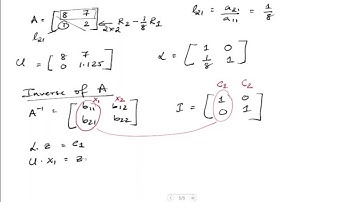 A = [ 8 7 ; 1 2 ]2x2 ← R2 - 1/8 R1
l21
l21 = a21/a11 = 1/8
U = [ 8 7 ; 0 1.125 ]
L = [ 1 0 ; 1/8 1 ]
Inverse of A
x1 x2
A⁻¹ = [ b11 b12 ; b21 b22 ]
C1 C2
I = [ 1 0 ; 0 1 ]
L. Z = C1
U. X1 = Z.